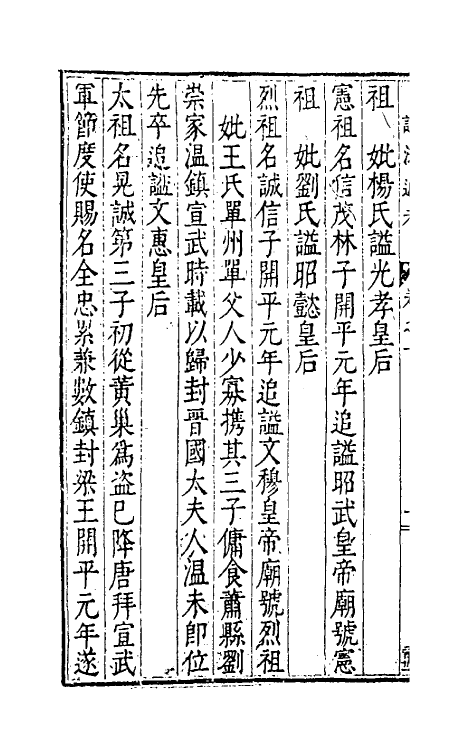 祖　妣楊氏謚光孝皇后
憲祖名信茂林子開平元年追謚昭武皇帝廟號憲
祖　妣劉氏謚昭懿皇后
烈祖名誠信子開平元年追謚文穆皇帝廟號烈祖
妣王氏單州單父人少寡携其三子傭食蕭縣劉
崇家温鎮宣武時載以歸封晋國太夫人温未卽位
先卒追謚文惠皇后
太祖名晃誠第三子初從黄巢爲盗已降唐拜宣武
軍節度使賜名全忠累兼數鎮封梁王開平元年遂